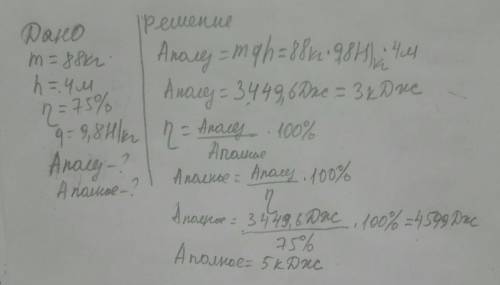 Дано
m = 88кг
h = 4м
η = 75%
g = 9,8Н/кг
Aполез - ?
Aполное - ?
Решение
Aполез = mgh = 88кг · 9,8Н/кг · 4м
Aполез = 3449,6Дж = 3кДж
η = Aполез / Aполное · 100%
Aполное = Aполез / η · 100%
Aполное = 3449,6Дж / 75% · 100% = 4599Дж
Aполное = 5кДж